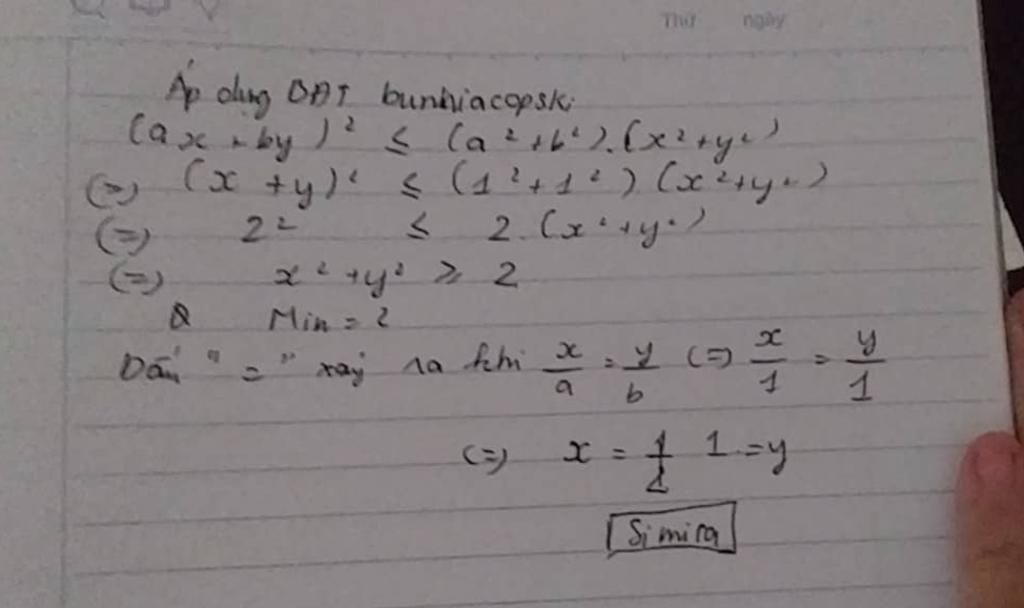 Thứ ngày
Áp dụng BĐT bunhiacopski
(ax + by)² ≤ (a² + b²).(x² + y²)
(=) (x + y)² ≤ (1² + 1²)(x² + y²)
(=) 2² ≤ 2.(x² + y²)
(=) x² + y² ≥ 2
Min = 2
Dấu "=" xảy ra khi x/a = y/b (=) x/1 = y/1
(=) x = 1 = y
Simira